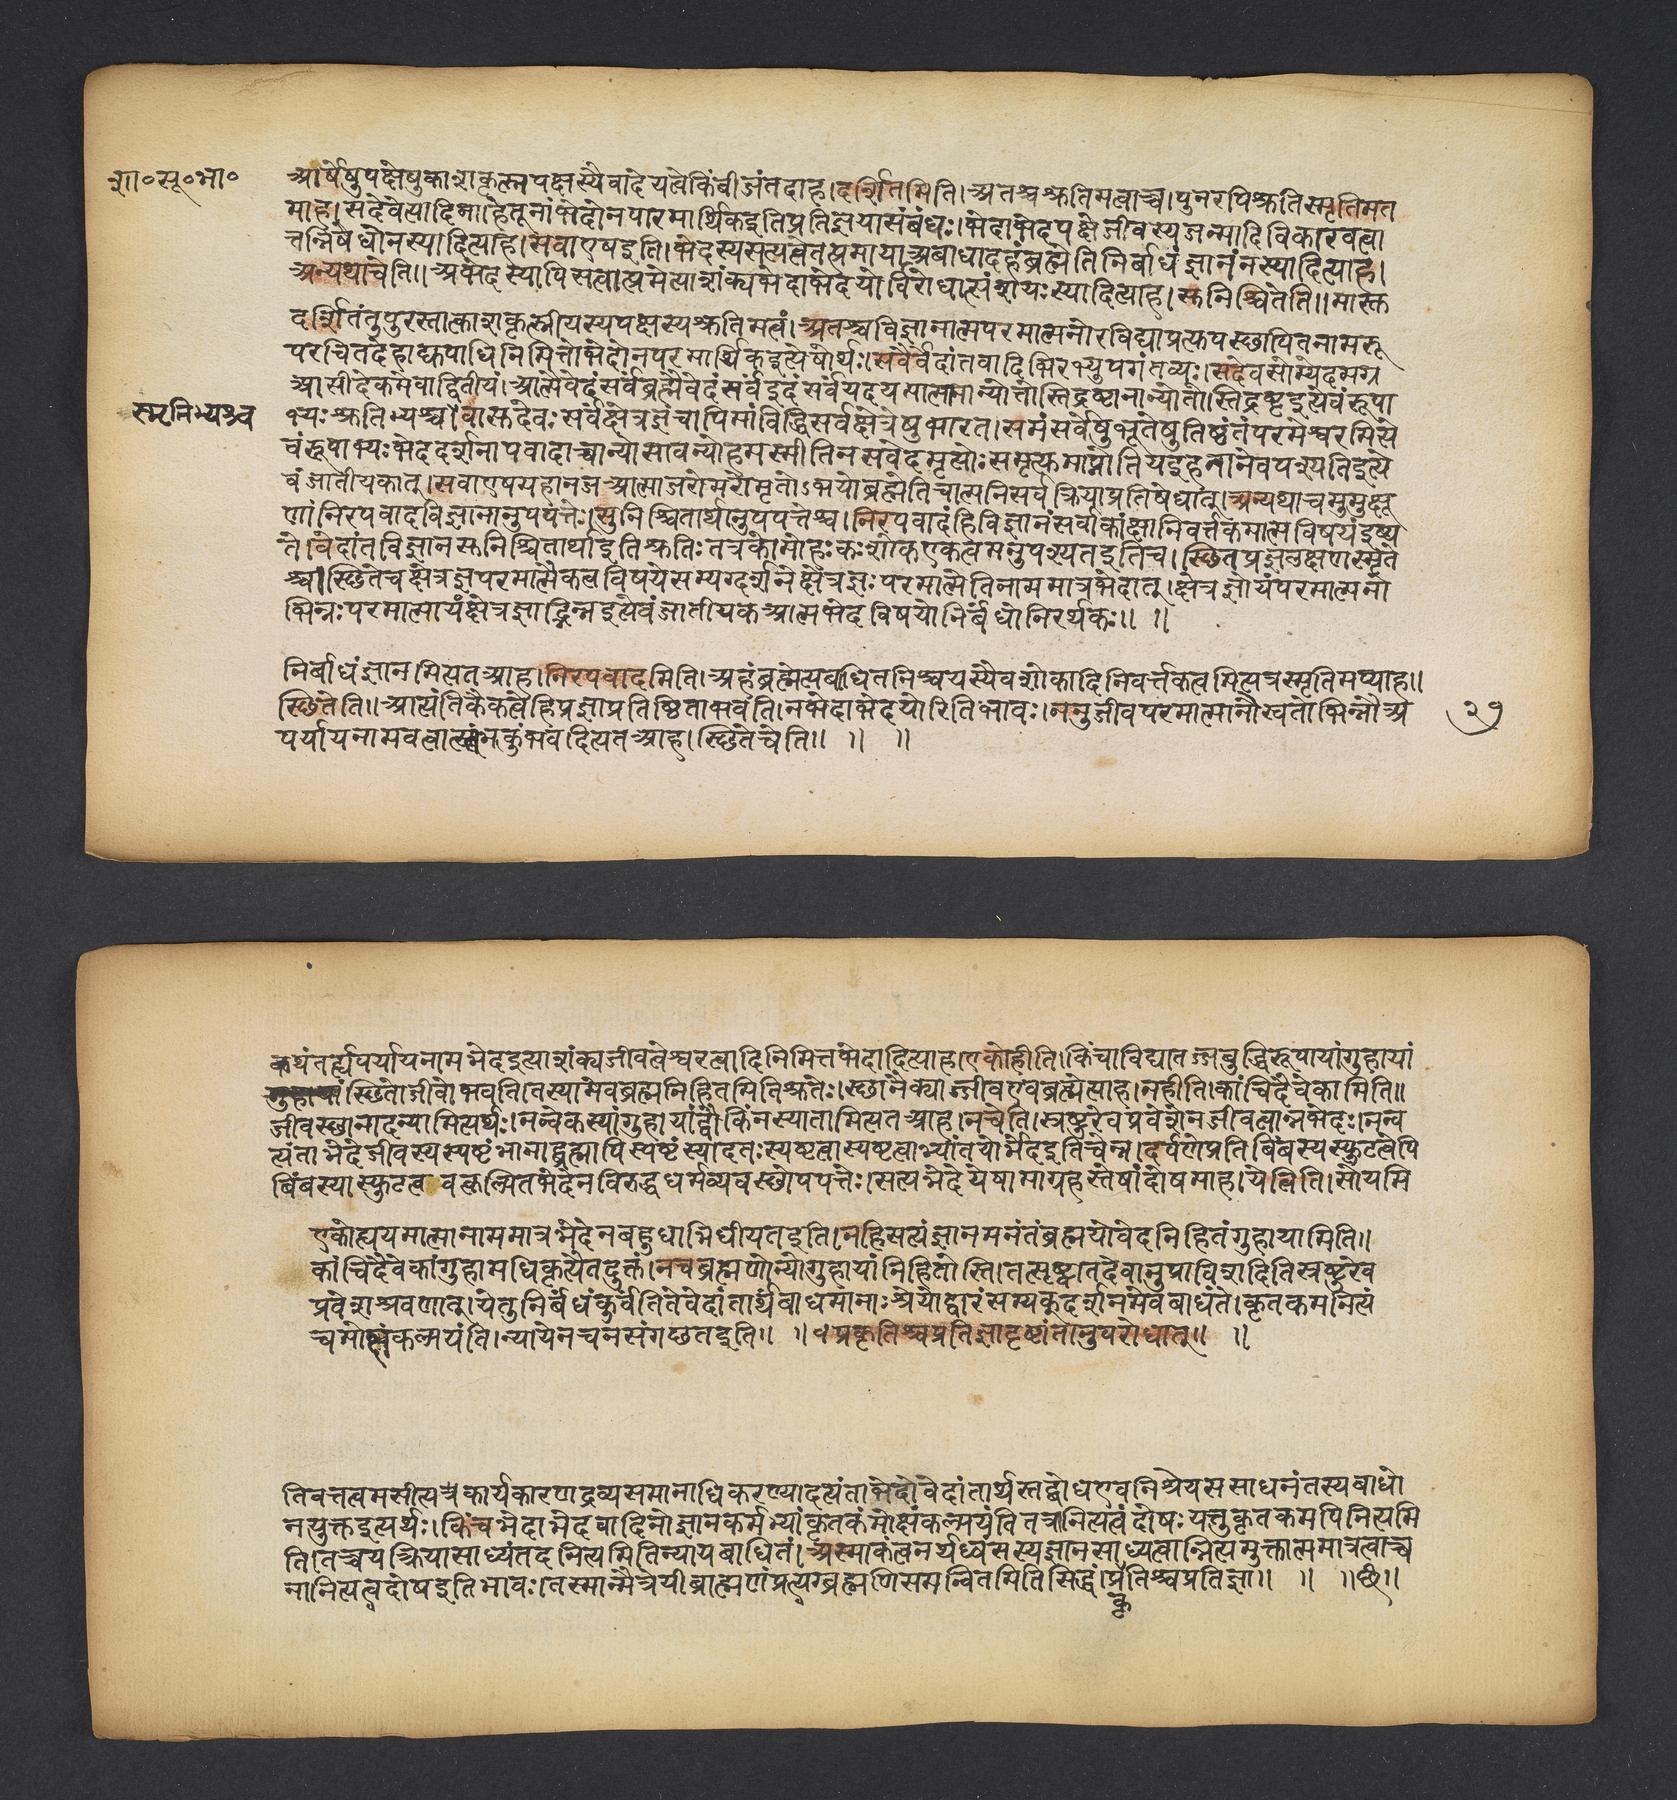 शा॰सू॰भा॰
आर्षेषुपक्षेषुकाशकृत्स्नपक्षस्यैवादेयत्वेकिंबीजंतदाह।दर्शितमिति।अतश्चश्रुतिमत्वाच्च।पुनरपिश्रुतिस्मृतिमत
माह।सदेवेत्यादिनाहेतूनांभेदोनपारमार्थिकइतिप्रतिज्ञयासंबंधः।भेदाभेदपक्षेजीवस्यजन्मादिविकारवत्वा
त्तन्निषेधोनस्यादित्याह।सवाएषइति।भेदस्यसत्यत्वेतत्प्रमायाअबाधादहंब्रह्मेतिनिर्बाधंज्ञानंनस्यादित्याह।
अन्यथाचेति॥अभेदस्यापिसत्वात्प्रमेत्याशंक्यभेदाभेदयोर्विरोधात्संशयःस्यादित्याह।सुनिश्चितेति॥मास्तु
दर्शितंतुपुरस्तात्काशकृत्स्नीयस्यपक्षस्यश्रुतिमत्वं।अतश्चविज्ञानात्मपरमात्मनोरविद्याप्रत्युपस्छापितनामरू
परचितदेहाद्युपाधिनिमित्तोभेदोनपरमार्थिकइत्येषोर्थः।सर्वैर्वेदांतवादिभिरभ्युपगंतव्यः।सदेवसोम्येदमग्र
आसीदेकमेवाद्वितीयं।आत्मैवेदंसर्वंब्रह्मैवेदंसर्वंइदंसर्वंयदयमात्मानान्योतोस्तिद्रष्टानान्यातोस्तिद्रष्टृइत्येवंरूपा
स्मृतिभ्यश्च
भ्यःश्रुतिभ्यश्च।वासुदेवःसर्वंक्षेत्रज्ञंचापिमांविद्धिसर्वक्षेत्रेषुभारत।समंसर्वेषुभूतेषुतिष्ठंतंपरमेश्वरमित्ये
वंरूपाभ्यःभेददर्शनापवादाच्चान्योसावन्योहमस्मीतिनसवेदमृत्योःसमृत्युमाप्नोतियइहनानेवपश्यतिइत्ये
वंजातीयकात्।सवाएषमहानजआत्माजरोमरोमृतोऽभयोब्रह्मेतिचात्मनिसर्वक्रियाप्रतिषेधात्।अन्यथाचमुमुक्षू
णांनिरपवादविज्ञानानुपपत्तेः।सुनिश्चितार्थानुपपत्तेश्च।निरपवादंहिविज्ञानंसर्वाकांक्षानिवर्त्तकमात्मविषयंइष्य
ते।वेदांतविज्ञानसुनिश्चितार्थाइतिश्रुतिःतत्रकोमोहःकःशोकएकत्वमनुपश्यतइतिच।स्छितप्रज्ञलक्षणस्मृते
श्च।स्छितेचक्षेत्रज्ञपरमात्मैकत्वविषयेसम्यग्दर्शनेक्षेत्रज्ञःपरमात्मेतिनाममात्रभेदात्।क्षेत्रज्ञोयंपरमात्मनो
भिन्नःपरमात्मायंक्षेत्रज्ञाद्भिन्नइत्येवंजातीयकआत्मभेदविषयोनिर्बंधोनिरर्थकः॥ ॥
निर्बाधंज्ञानमित्यतआह।निरपवादमिति।अहंब्रह्मेत्यबाधितनिश्चयस्यैवशोकादिनिवर्त्तकत्वमित्यत्रस्मृतिमप्याह॥
स्छितेति॥आत्यंतिकैकत्वेहिप्रज्ञाप्रतिष्ठिताभवंति।नभेदाभेदयोरितिभावः।ननुजीवपरमात्मानौस्वतोभिन्नौअ
पर्यायनामवत्वात्स्तंभकुंभवदित्यतआह।स्छितेचेति॥ ॥ ॥
२७
कथंतर्ह्यपर्यायनामभेदइत्याशंक्यजीवत्वेश्वरत्वादिनिमित्तभेदादित्याह।एकोहीति।किंचाविद्यातज्जबुद्धिरूपायांगुहायां
स्छितोजीवोभवति।तस्यामेवब्रह्मनिहितमितिश्रुतेः।स्छानैक्याज्जीवएवब्रह्मेत्याह।नहीति।कांचिदेवैकामिति॥
जीवस्छानादन्यामित्यर्थः।नन्वेकस्यांगुहायांद्वौकिंनस्यातामित्यतआह।नचेति।स्रष्टुरेवप्रवेशेनजीवत्वान्नभेदः।नन्व
त्यंताभेदेजीवस्यस्पष्टंभानाद्ब्रह्मापिस्पष्टंस्यादतःस्पष्टत्वास्पष्टत्वाभ्यांतयोर्भेदइतिचेन्न।दर्पणेप्रतिबिंबस्यस्फुटत्वेपि
बिंबस्यास्फुटत्ववत्कल्पितभेदेनविरुद्धधर्मव्यवस्छोपपत्तेः।सत्यभेदेयेषामाग्रहस्तेषांदोषमाह।येत्विति।सोयमि
एकोह्ययमात्मानाममात्रभेदेनबहुधाभिधीयतइति।नहिसत्यंज्ञानमनंतंब्रह्मयोवेदनिहितंगुहायामिति॥
कांचिदेवैकांगुहामधिकृत्यैतदुक्तं।नचब्रह्मणोन्योगुहायांनिहितोस्ति।तत्सृष्ट्वातदेवानुप्राविशदितिस्रष्टुरेव
प्रवेशश्रवणात्।येतुनिर्बंधंकुर्वंतितेवेदांतार्थंबाधमानाःश्रेयोद्वारंसम्यक्दर्शनमेवबाधंते।कृतकमनित्यं
चमोक्षंकल्पयंति।न्यायेनचनसंगछतइति॥ ॥७प्रकृतिश्चप्रतिज्ञादृष्टांतानुपरोधात्॥ ॥
तिवत्तत्वमसीत्यत्रकार्यकारणद्रव्यसमानाधिकरण्यादत्यंताभेदोवेदांतार्थस्तद्बोधएवनिश्रेयससाधनंतस्यबाधो
नयुक्तइत्यर्थः।किंचभेदाभेदवादिनोज्ञानकर्मभ्यांकृतकंमोक्षंकल्पयंतितत्रानित्यत्वंदोषःयत्तुकृतकमपिनित्यमि
ति।तच्चयत्क्रियासाध्यंतदनित्यमितिन्यायबाधितं।अस्माकंत्वनर्थध्वंसस्यज्ञानसाध्यत्वान्नित्यमुक्तात्ममात्रत्वाच्च
नानित्यत्वदोषइतिभावः।तस्मान्मैत्रेयीब्राह्मणंप्रत्यग्ब्रह्मणिसमन्वितमितिसिद्धं।प्रकृतिश्चप्रतिज्ञा॥ ॥ ॥छ॥